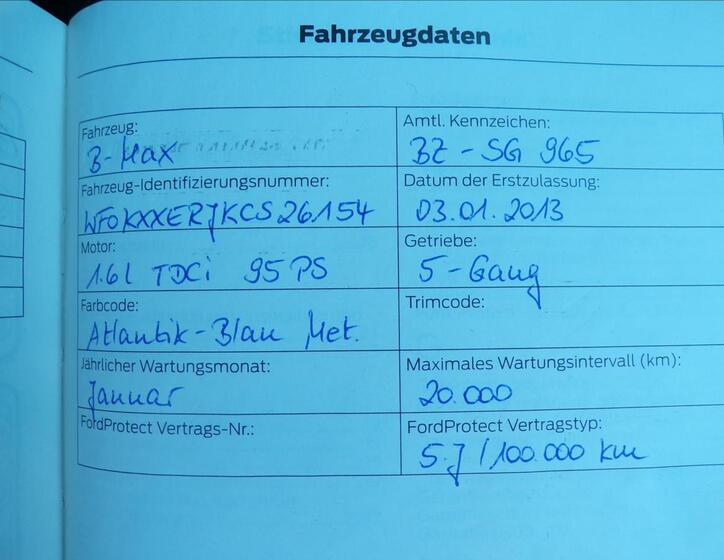 Fahrzeugdaten
Fahrzeug:
B-Max
Amtl. Kennzeichen:
BZ - SG 965
Fahrzeug-Identifizierungsnummer:
WF0KXXERJKCS26154
Datum der Erstzulassung:
03.01.2013
Motor:
1.6l TDCi 95 PS
Getriebe:
5-Gang
Farbcode:
Atlantik-Blau Met.
Trimcode:
Jährlicher Wartungsmonat:
Januar
Maximales Wartungsintervall (km):
20.000
FordProtect Vertrags-Nr.:
FordProtect Vertragstyp:
5.J/100.000 km